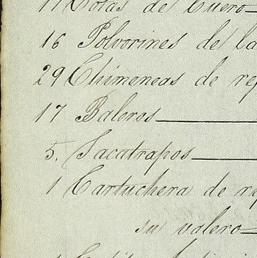 17 Cotas de Cuero
16 Polvorines de
29 Chimeneas de
17 Baleros
5. Sacatrapos
1 Cartuchera de
su valero